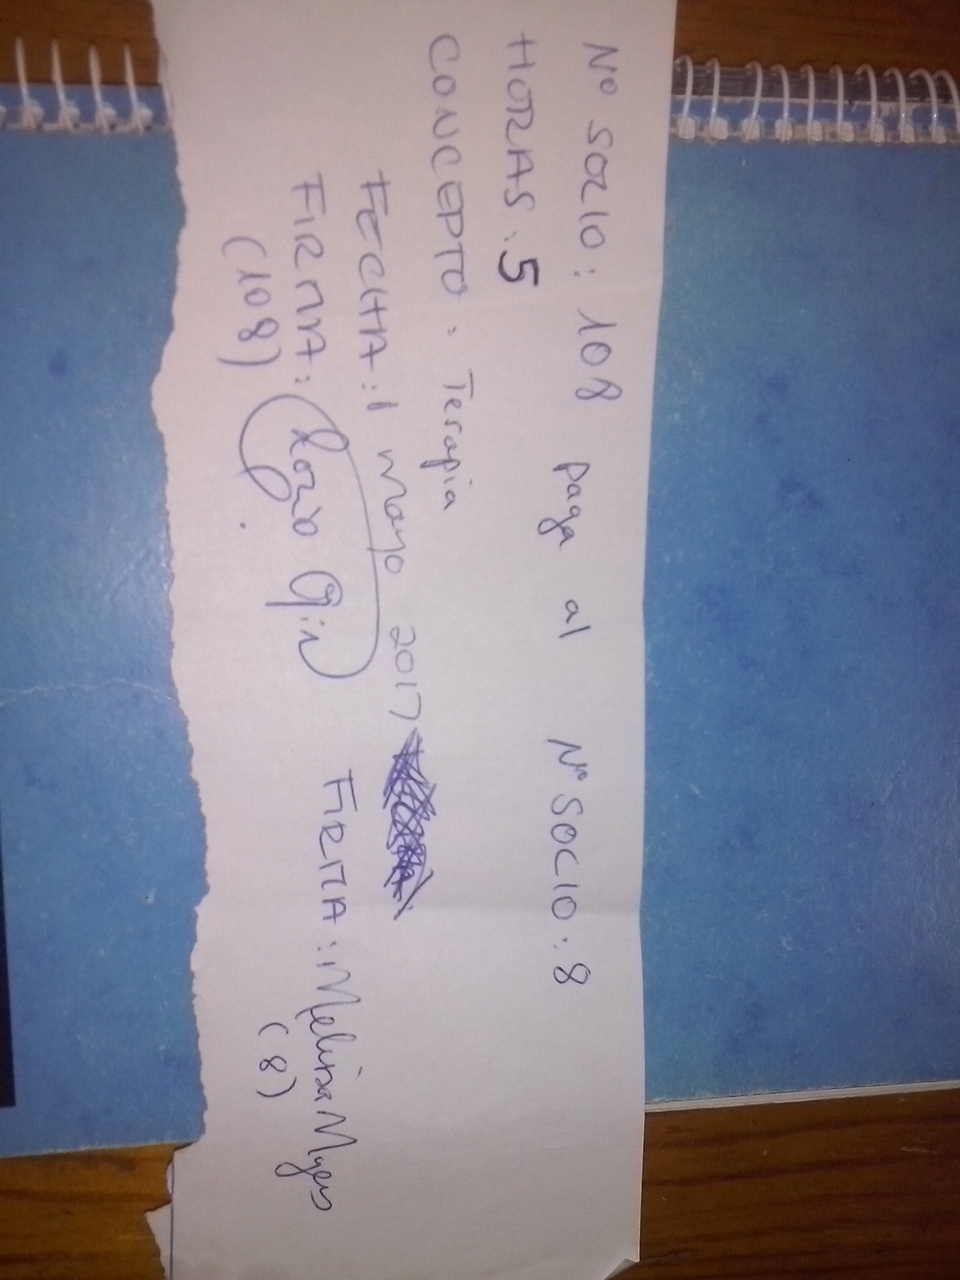 Nº SOCIO: 108 paga al Nº SOCIO: 8
HORAS: 5
CONCEPTO: Terapia
FECHA: 1 mayo 2017
FIRMA: Rocio Gin FIRMA: Melissa Myers
(108) (8)